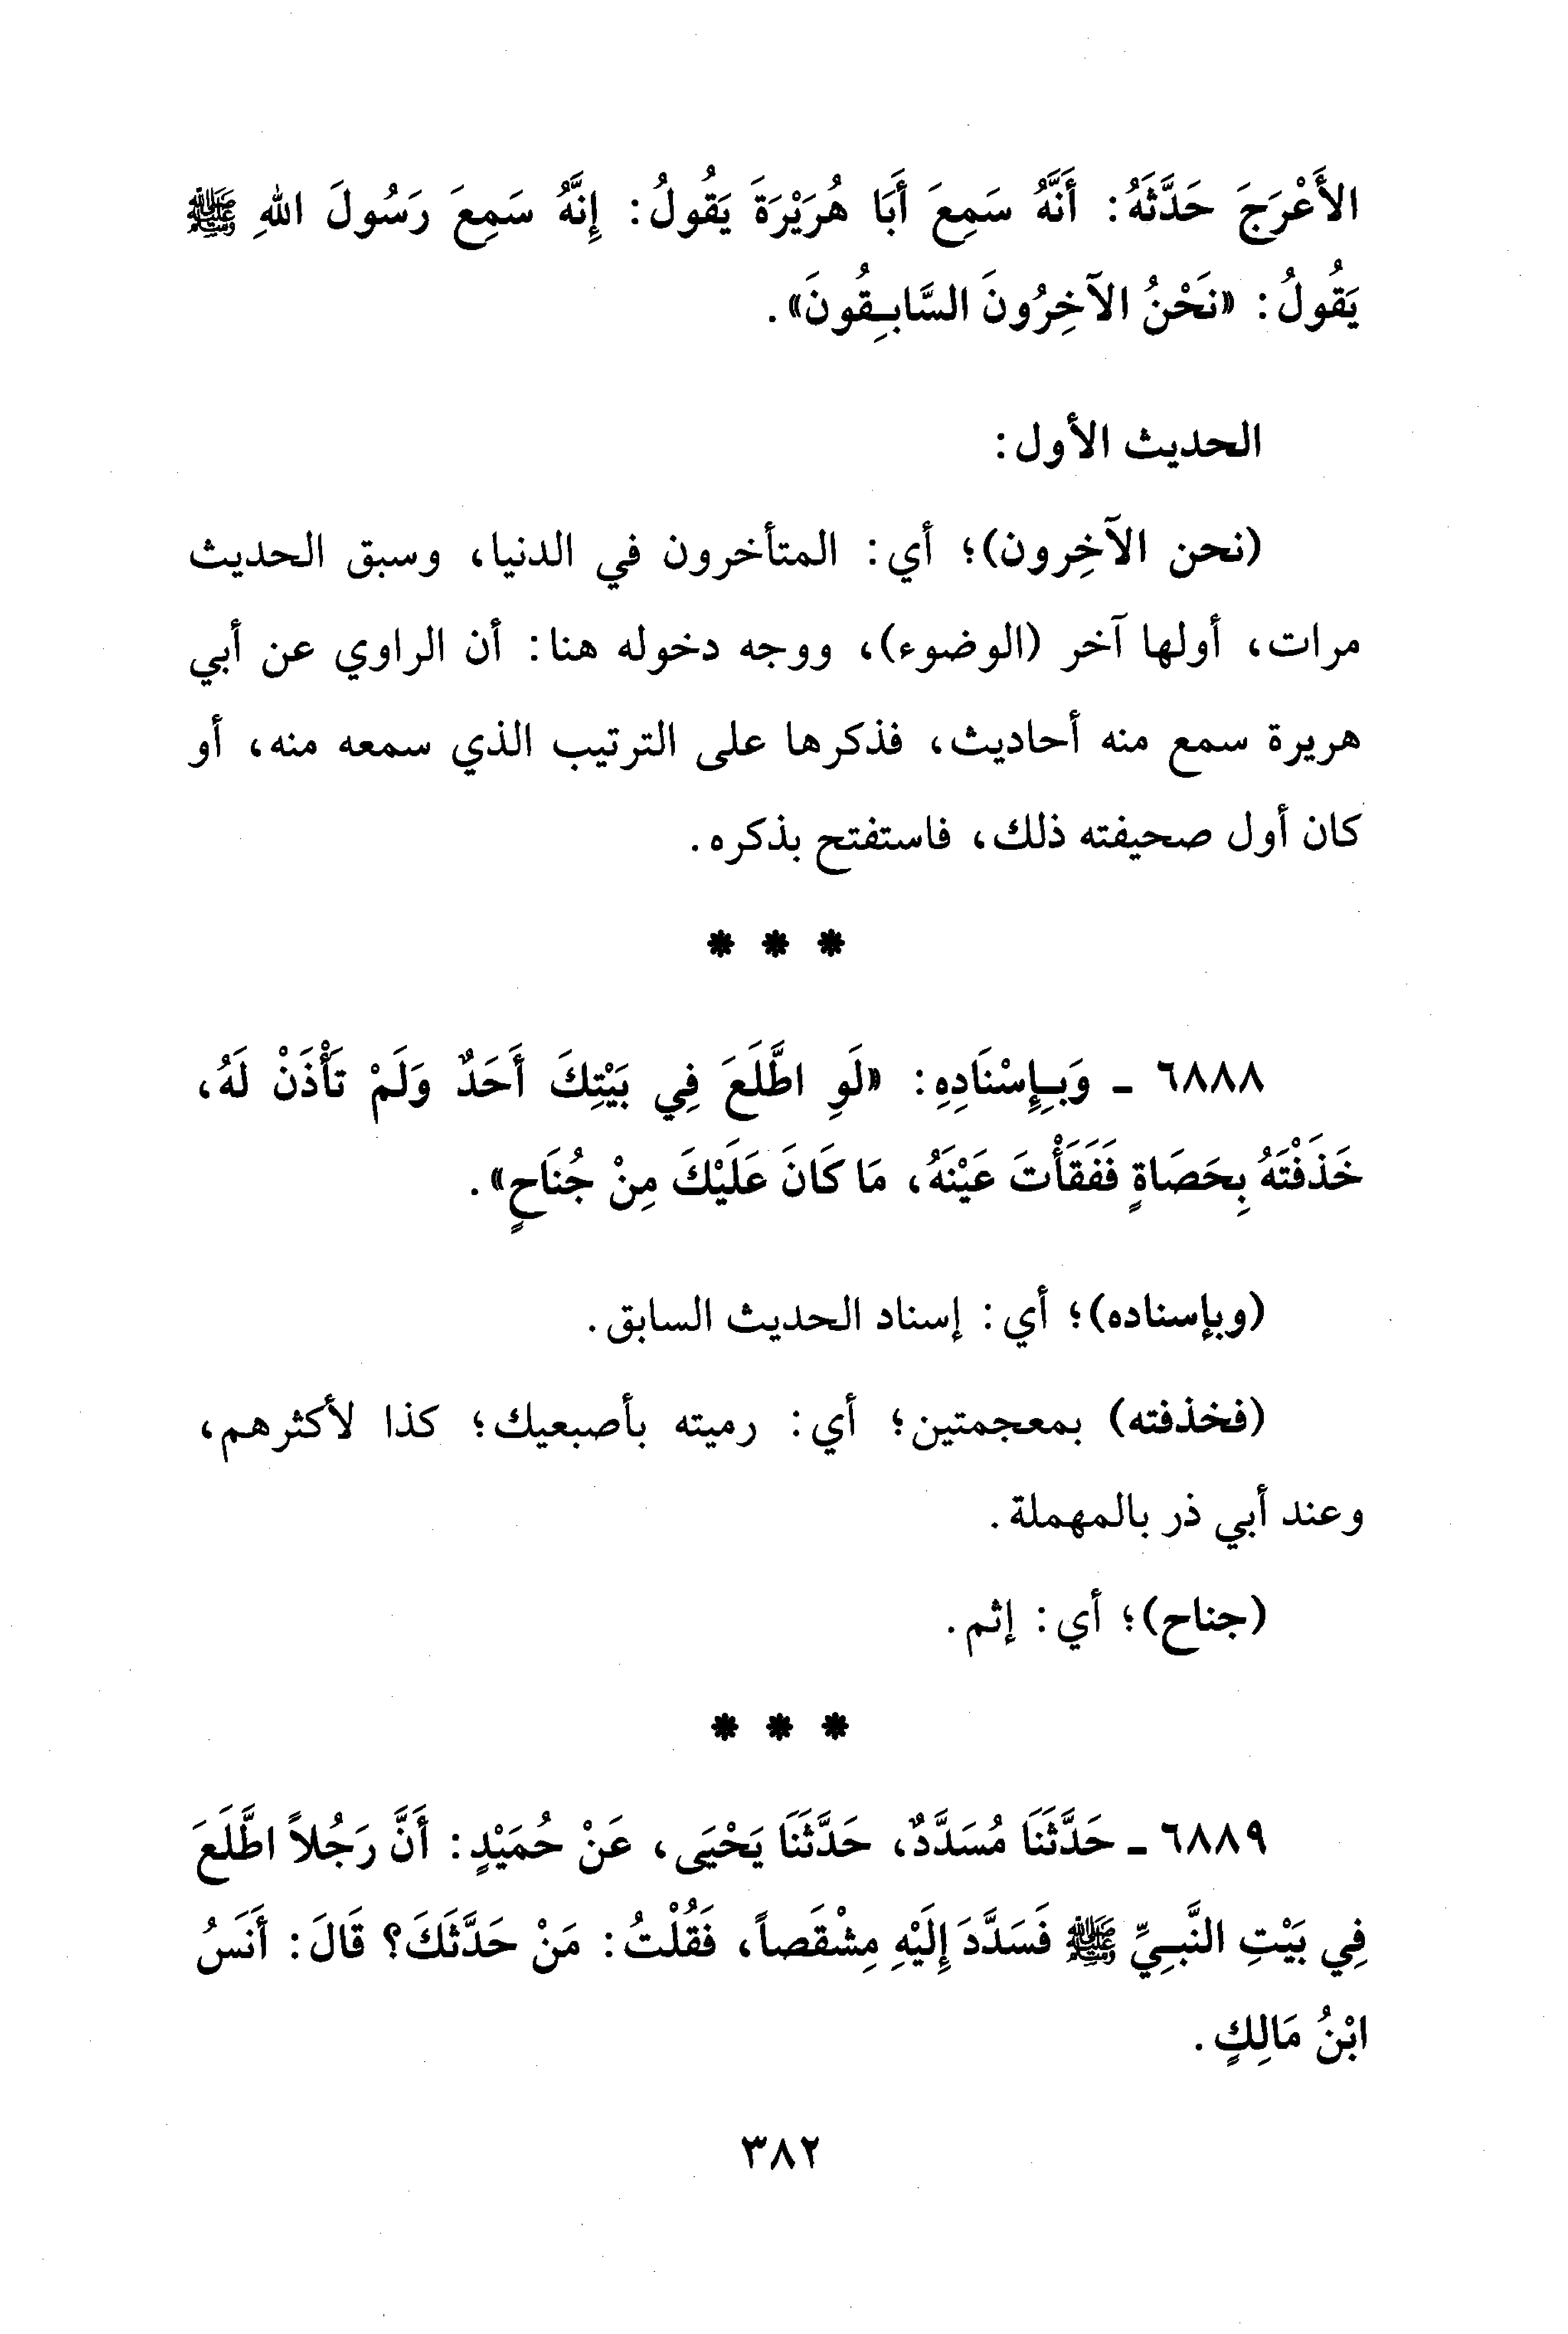 الأَعْرَجَ حَدَّثَهُ: أَنَّهُ سَمِعَ أَبَا هُرَيْرَةَ يَقُولُ: إِنَّهُ سَمِعَ رَسُولَ اللهِ ﷺ
يَقُولُ: «نَحْنُ الآخِرُونَ السَّابِقُونَ».
الحديث الأول:
(نحن الآخِرون)؛ أي: المتأخرون في الدنيا، وسبق الحديث
مرات، أولها آخر (الوضوء)، ووجه دخوله هنا: أن الراوي عن أبي
هريرة سمع منه أحاديث، فذكرها على الترتيب الذي سمعه منه، أو
كان أول صحيفته ذلك، فاستفتح بذكره.
* * *
٦٨٨٨ ـ وَبِإِسْنَادِهِ: «لَوِ اطَّلَعَ فِي بَيْتِكَ أَحَدٌ وَلَمْ تَأْذَنْ لَهُ،
خَذَفْتَهُ بِحَصَاةٍ فَفَقَأْتَ عَيْنَهُ، مَا كَانَ عَلَيْكَ مِنْ جُنَاحٍ».
(وبإسناده)؛ أي: إسناد الحديث السابق.
(فخذفته) بمعجمتين؛ أي: رميته بأصبعيك؛ كذا لأكثرهم،
وعند أبي ذر بالمهملة.
(جناح)؛ أي: إثم.
* * *
٦٨٨٩ ـ حَدَّثَنَا مُسَدَّدٌ، حَدَّثَنَا يَحْيَى، عَنْ حُمَيْدٍ: أَنَّ رَجُلاً اطَّلَعَ
فِي بَيْتِ النَّبِيِّ ﷺ فَسَدَّدَ إِلَيْهِ مِشْقَصاً، فَقُلْتُ: مَنْ حَدَّثَكَ؟ قَالَ: أَنَسُ
ابْنُ مَالِكٍ.
٣٨٢